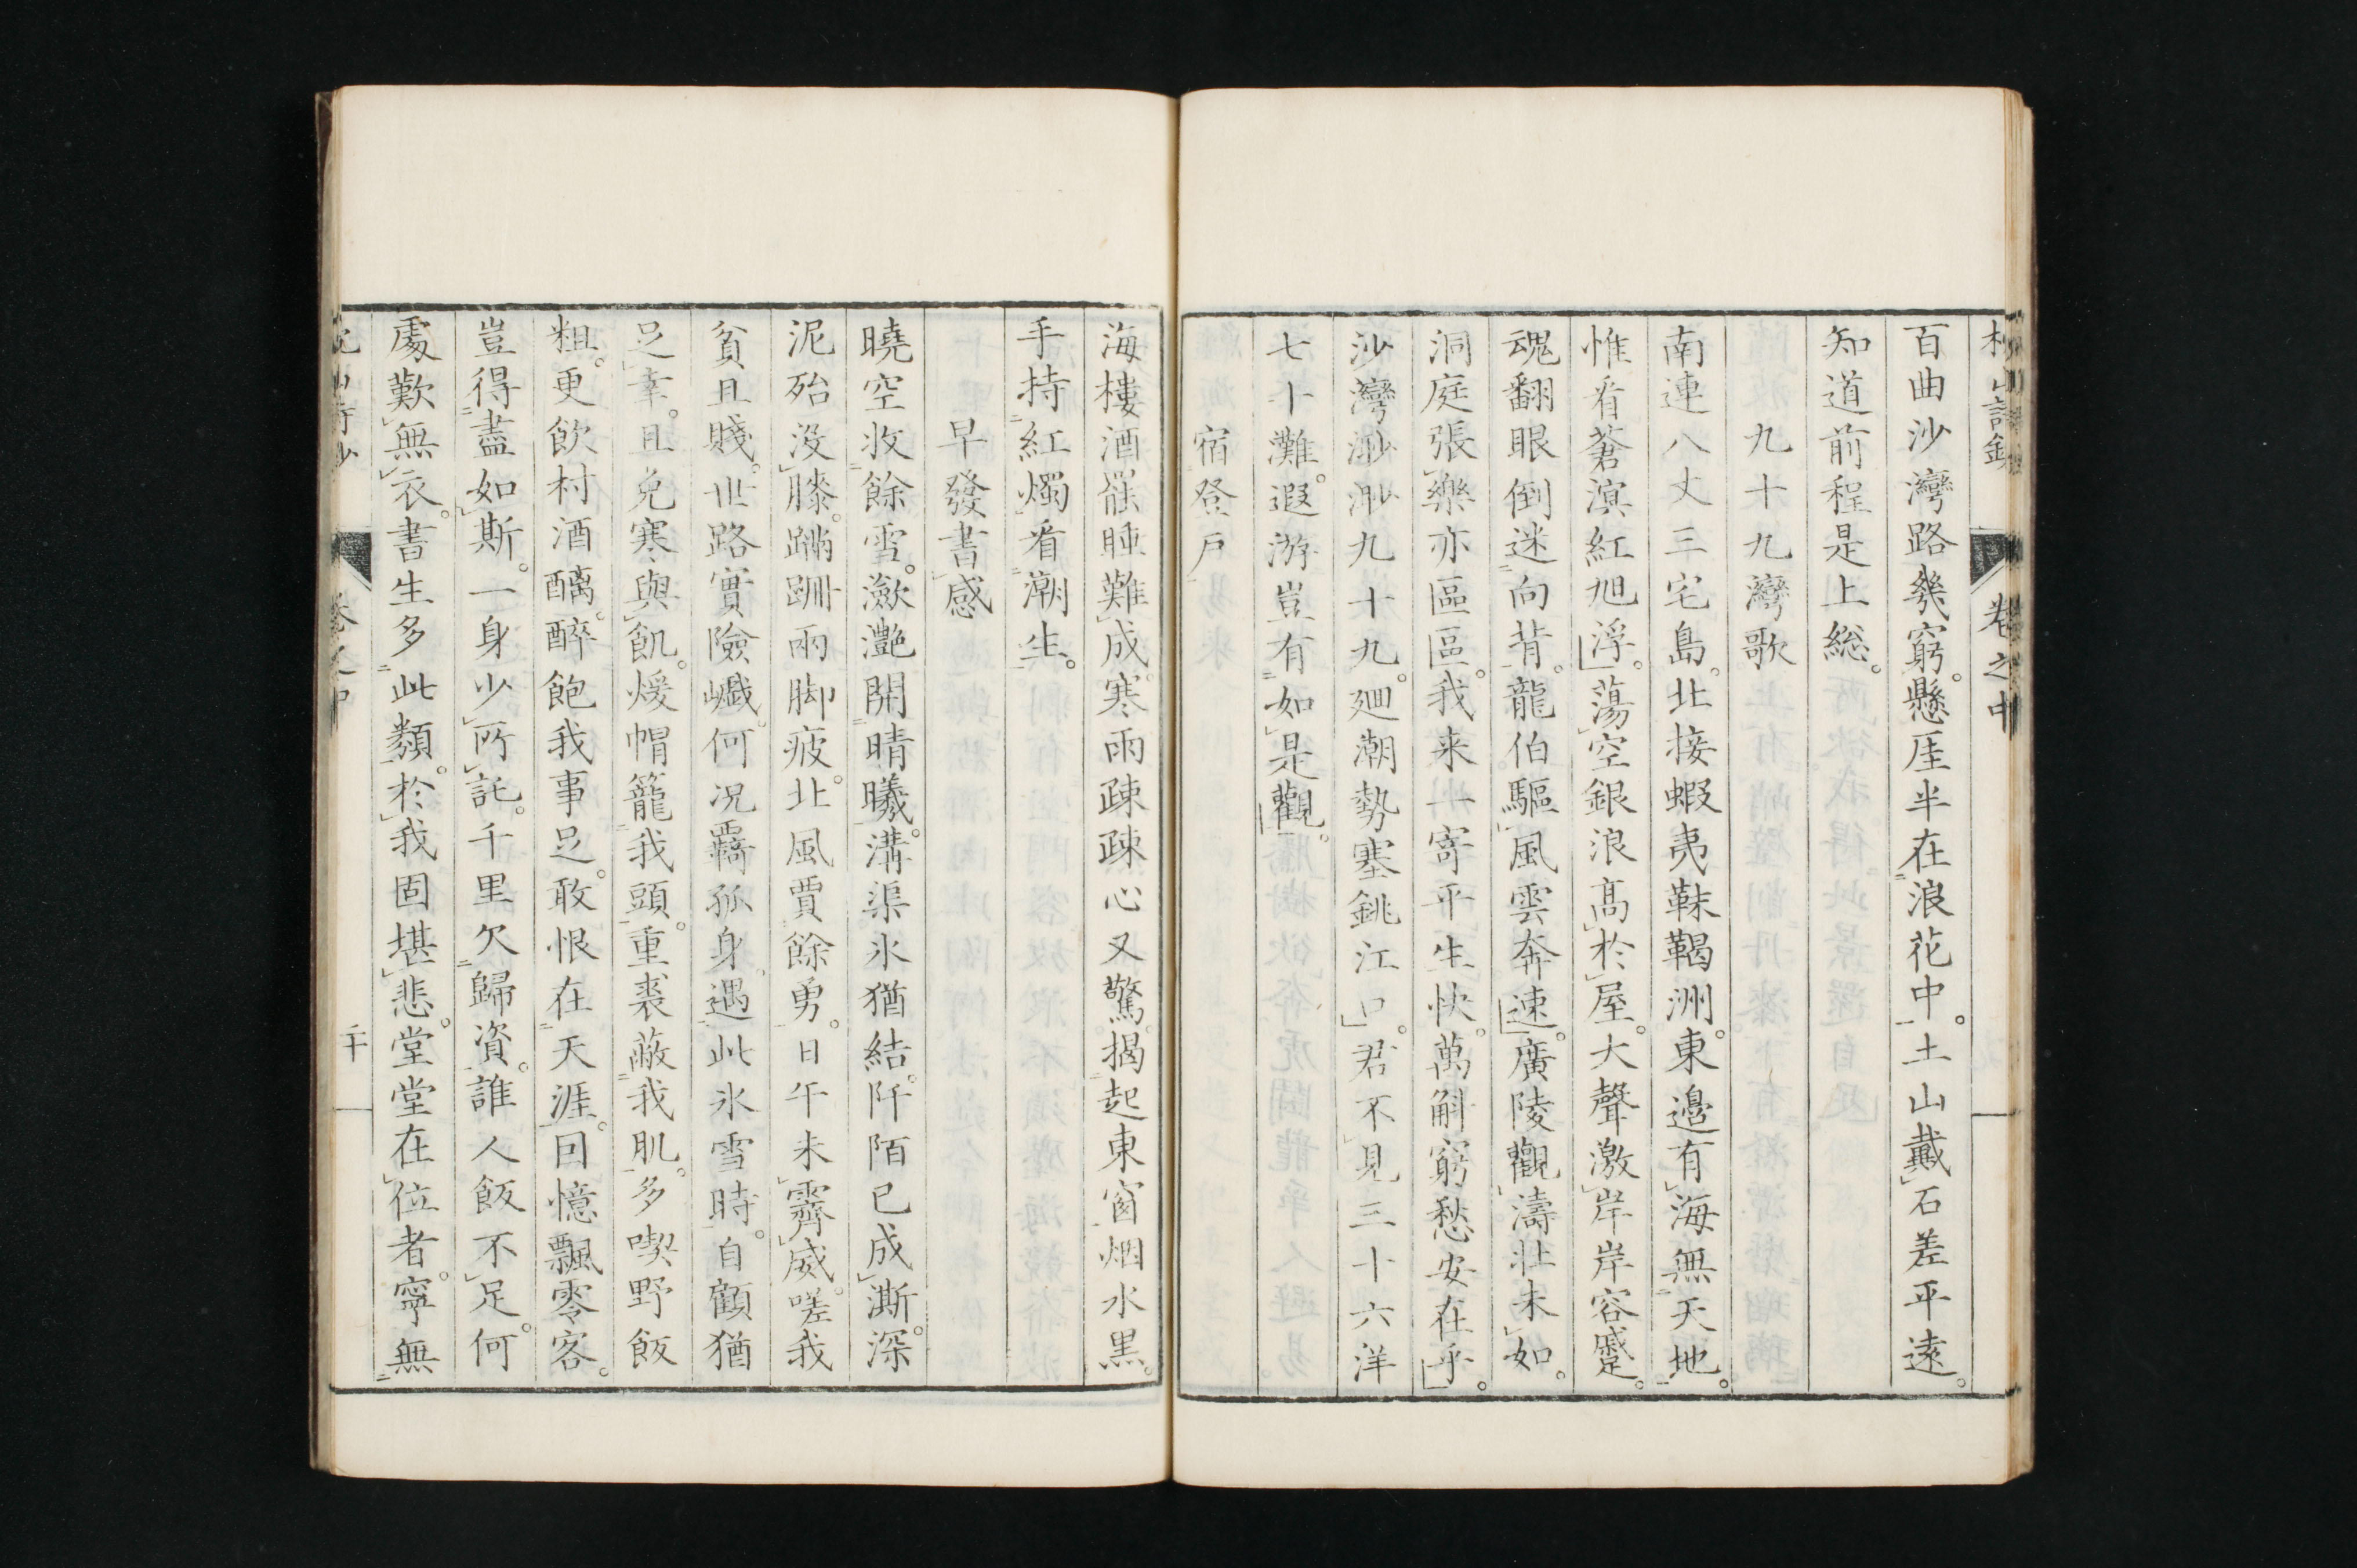 百曲沙灣路幾窮。懸厓半在浪花中。土山戴石差平遠。
知道前程是上総。
九十九灣歌
南連八丈三宅島。北接蝦夷靺鞨洲。東邊有海無天地。
惟看蒼溟紅旭浮。蕩空銀浪高於屋。大聲激岸岸容蹙。
魂翻眼倒迷向背。龍伯驅風雲奔速。廣陵觀濤壮未如。
洞庭張樂亦區區。我来一寄平生快。萬斛窮愁安在乎。
沙灣渺渺九十九。廻潮勢塞銚江口。君不見三十六洋
七十灘。遐游豈有如是觀。
宿登戸
海樓酒罷睡難成寒雨疎疎心又驚揭起東窗烟水黒。
手持紅燭看潮生。
早發書感
曉空收餘雪。瀲灔開晴曦。溝渠氷猶結。阡陌已成澌。深
泥殆没膝。蹣跚兩脚疲。北風賈餘勇。日午未霽威。嗟我
貧且賤。世路實險巇。何况羇孤身。遇此氷雪時。自顧猶
足幸。且免寒與飢。煖帽籠我頭。重裘蔽我肌。多喫野飯
粗。更飲村酒醨。醉飽我事足。敢恨在天涯。回憶飄零客。
豈得盡如斯。一身少所託。千里欠歸資。誰人飯不足。何
處歎無衣。書生多此類。於我固堪悲。堂堂在位者。寧無
卷之中
卷之中
二十